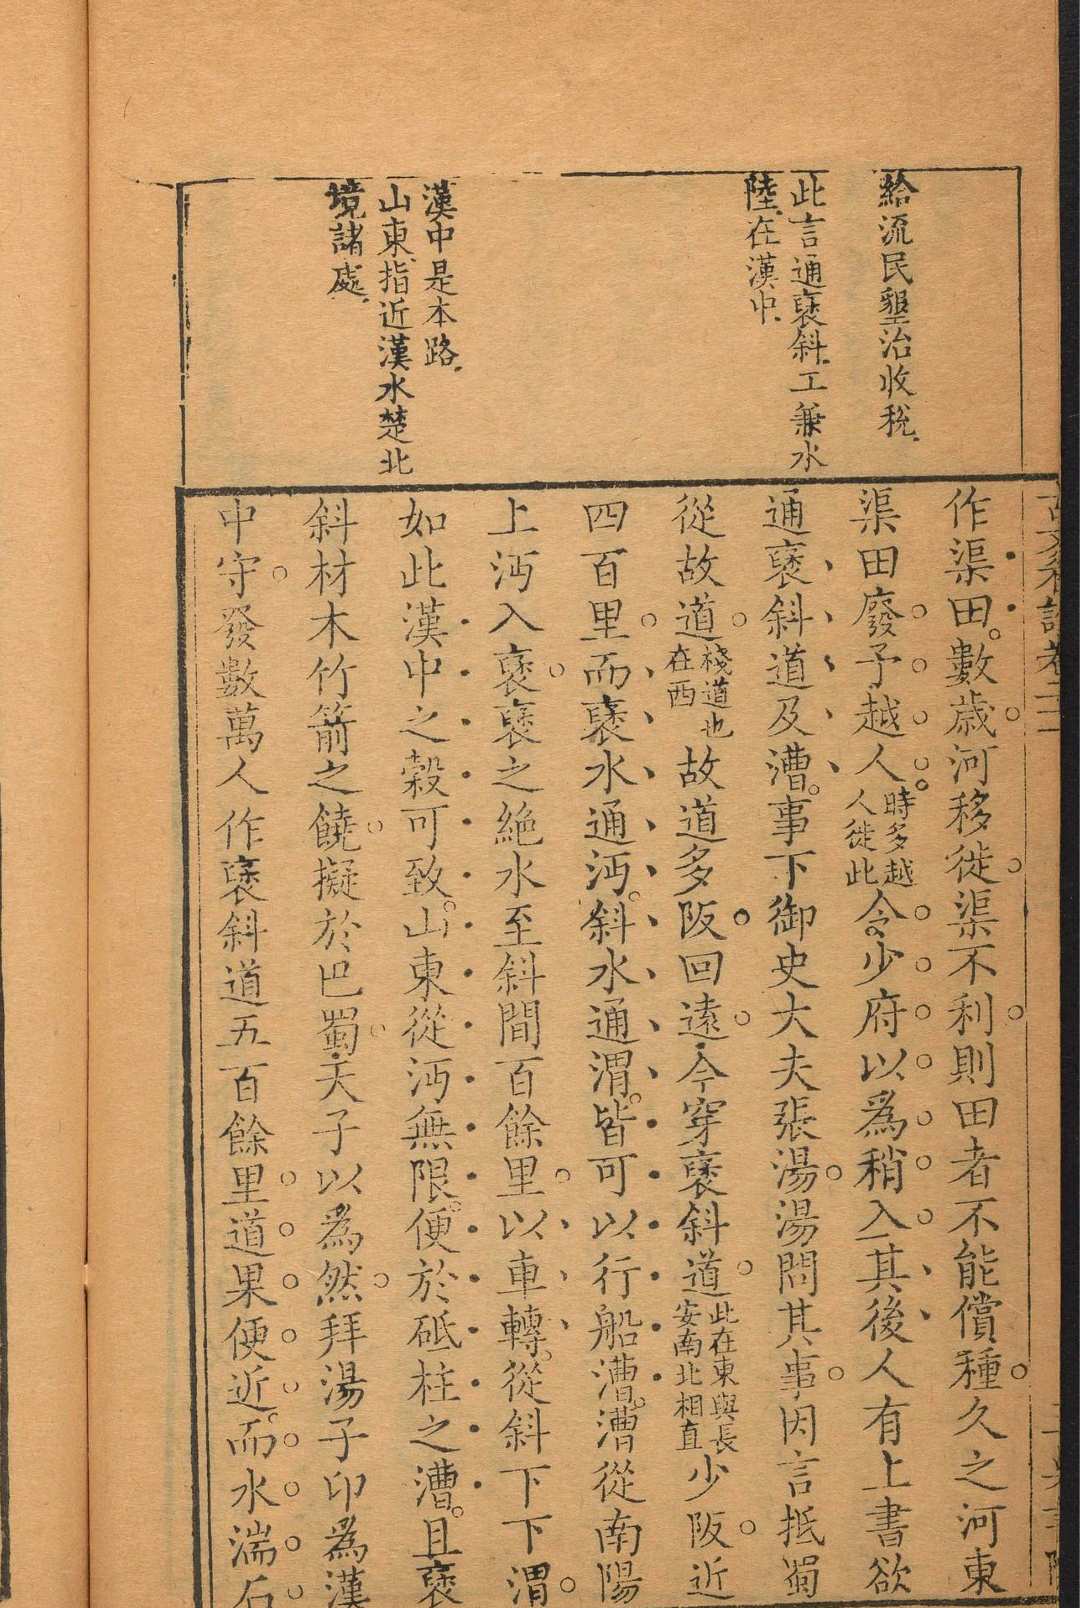 給流民墾治收稅
此言通褒斜工兼水
陸在漢中
漢中是本路
山東指近漢水楚北
境諸處
作渠田數歲河移徙渠不利則田者不能償種久之河東
渠田廢予越人時多越人徙此令少府以為稍入其後人有上書欲
通褒斜道及漕事下御史大夫張湯湯問其事因言抵蜀
從故道棧道也在西故道多阪回遠今穿褒斜道此在東與長安南北相直少阪近
四百里而褒水通沔斜水通渭皆可以行船漕漕從南陽
上沔入褒褒之絕水至斜間百餘里以車轉從斜下下渭
如此漢中之穀可致山東從沔無限便於砥柱之漕且褒
斜材木竹箭之饒擬於巴蜀天子以為然拜湯子印為漢
中守發數萬人作褒斜道五百餘里道果便近而水湍石